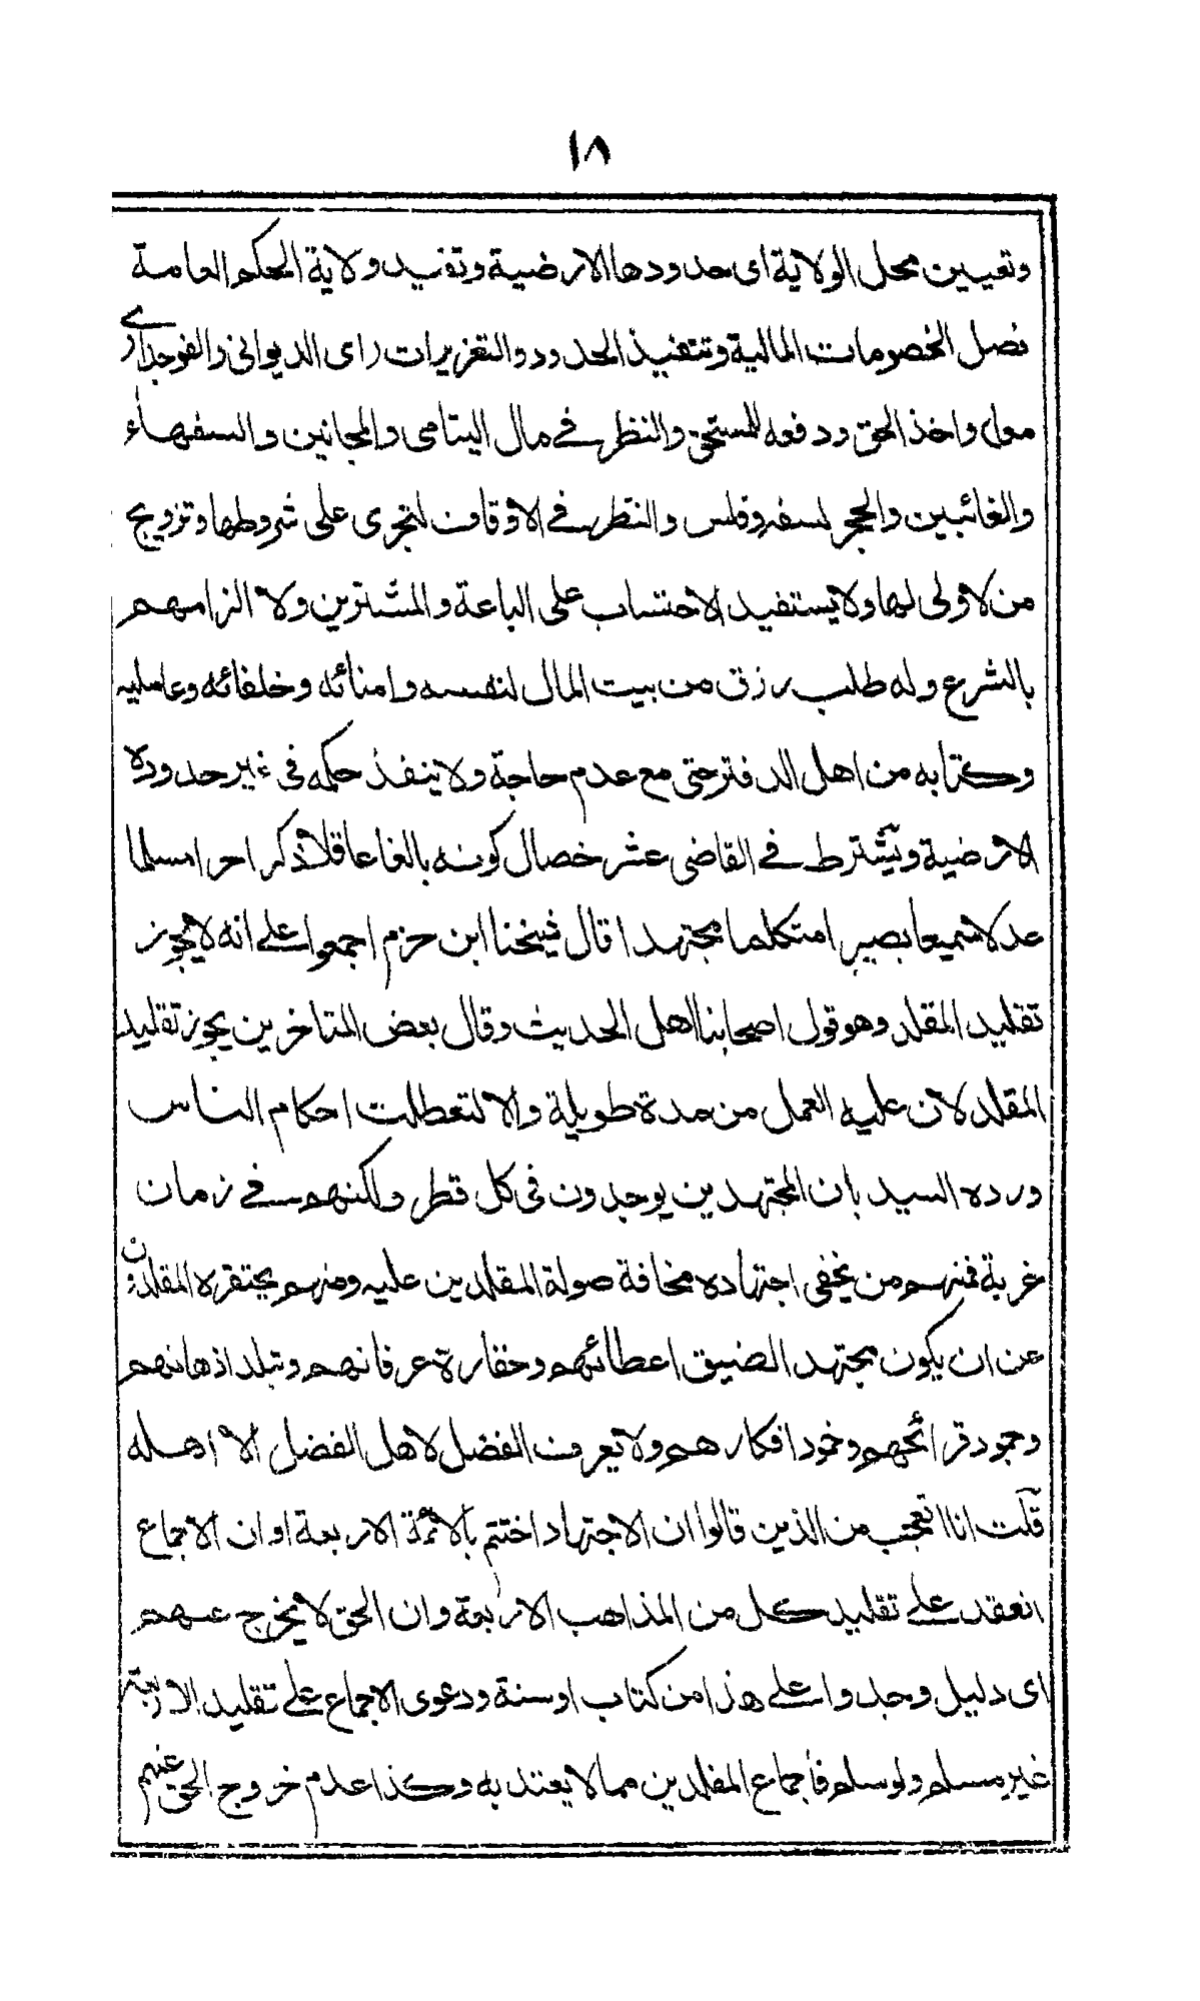 ١٨
وتعيين محل الولاية اى حدودها الارضية وتفيد ولاية الحكم العامة
فصل الخصومات المالية وتنفيذ الحدود والتعزيرات راى الديوانى والفوجدارى
معا، واخذ الحق ودفعه للمستحق والنظر في مال اليتامى والمجانين والسفهاء
والغائبين والحجر لسفه وفلس والنظر في الاوقاف لتجرى على شروطها وتزويج
من لا ولى لها ولا يستفيد الاحتساب على الباعة والمشترين ولا الزامهم
بالشرع وله طلب رزق من بيت المال لنفسه وامنائه وخلفائه وعامليه
وكتابه من اهل الدفتر حتى مع عدم حاجة ولا ينفذ حكمه فى غير حدوده
الارضية ويشترط في القاضى عشر خصال كونه بالغا عاقلا ذكرا حرا مسلما
عدلا سميعا بصيرا متكلما مجتهدا قال شيخنا ابن حزم اجمعوا على انه لا يجوز
تقليد المقلد وهو قول اصحابنا اهل الحديث وقال بعض المتاخرين يجوز تقليد
المقلد لان عليه العمل من مدة طويلة والا لتعطلت احكام الناس
ورده السيد بان المجتهدين يوجدون فى كل قطر ولكنهم في زمان
غربة فمنهم من يخفى اجتهاده مخافة صولة المقلدين عليه ومنهم يحتقره المقلدون
عن ان يكون مجتهدا لضيق اعطائهم وحقارة عرفانهم وتبلد اذهانهم
وجمود قرائحهم وخمود افكارهم ولا يعرف الفضل لاهل الفضل الا اهله
قلت انا اتعجب من الذين قالوا ان الاجتهاد اختتم بالائمة الاربعة او ان الاجماع
انعقد على تقليد كل من المذاهب الاربعة وان الحق لا يخرج عنهم
اى دليل وجدوا على هذا من كتاب او سنة ودعوى الاجماع على تقليد الاربعة
غير مسلم ولو سلم فاجماع المقلدين مما لا يعتد به وكذا عدم خروج الحق عنهم